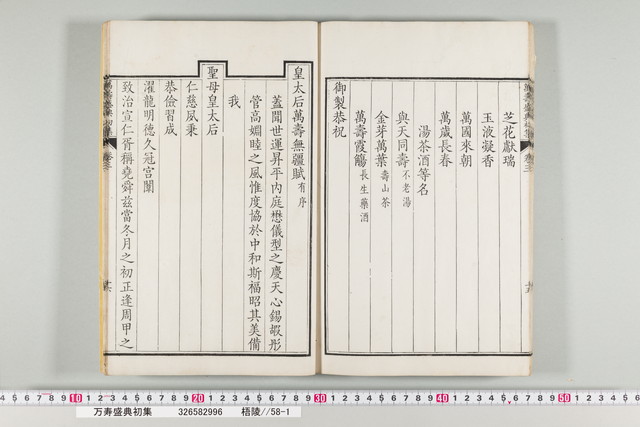 芝花獻瑞
玉液凝香
萬國來朝
萬歲長春
湯茶酒等名
與天同壽 不老湯
金芽萬葉 壽山茶
萬壽霞觴 長生藥酒
御製恭祝
皇太后萬壽無疆賦 有序
蓋聞世運昇平內庭懋儀型之慶天心錫嘏彤
管高嫺睦之風惟度協於中和斯福昭其美備
我
聖母皇太后
仁慈夙秉
恭儉習成
濯龍明德久冠宮闈
致治宣仁胥稱堯舜茲當冬月之初正逢周甲之
万寿盛典初集 326582996 梧陵//58-1
10 20 30 40 50